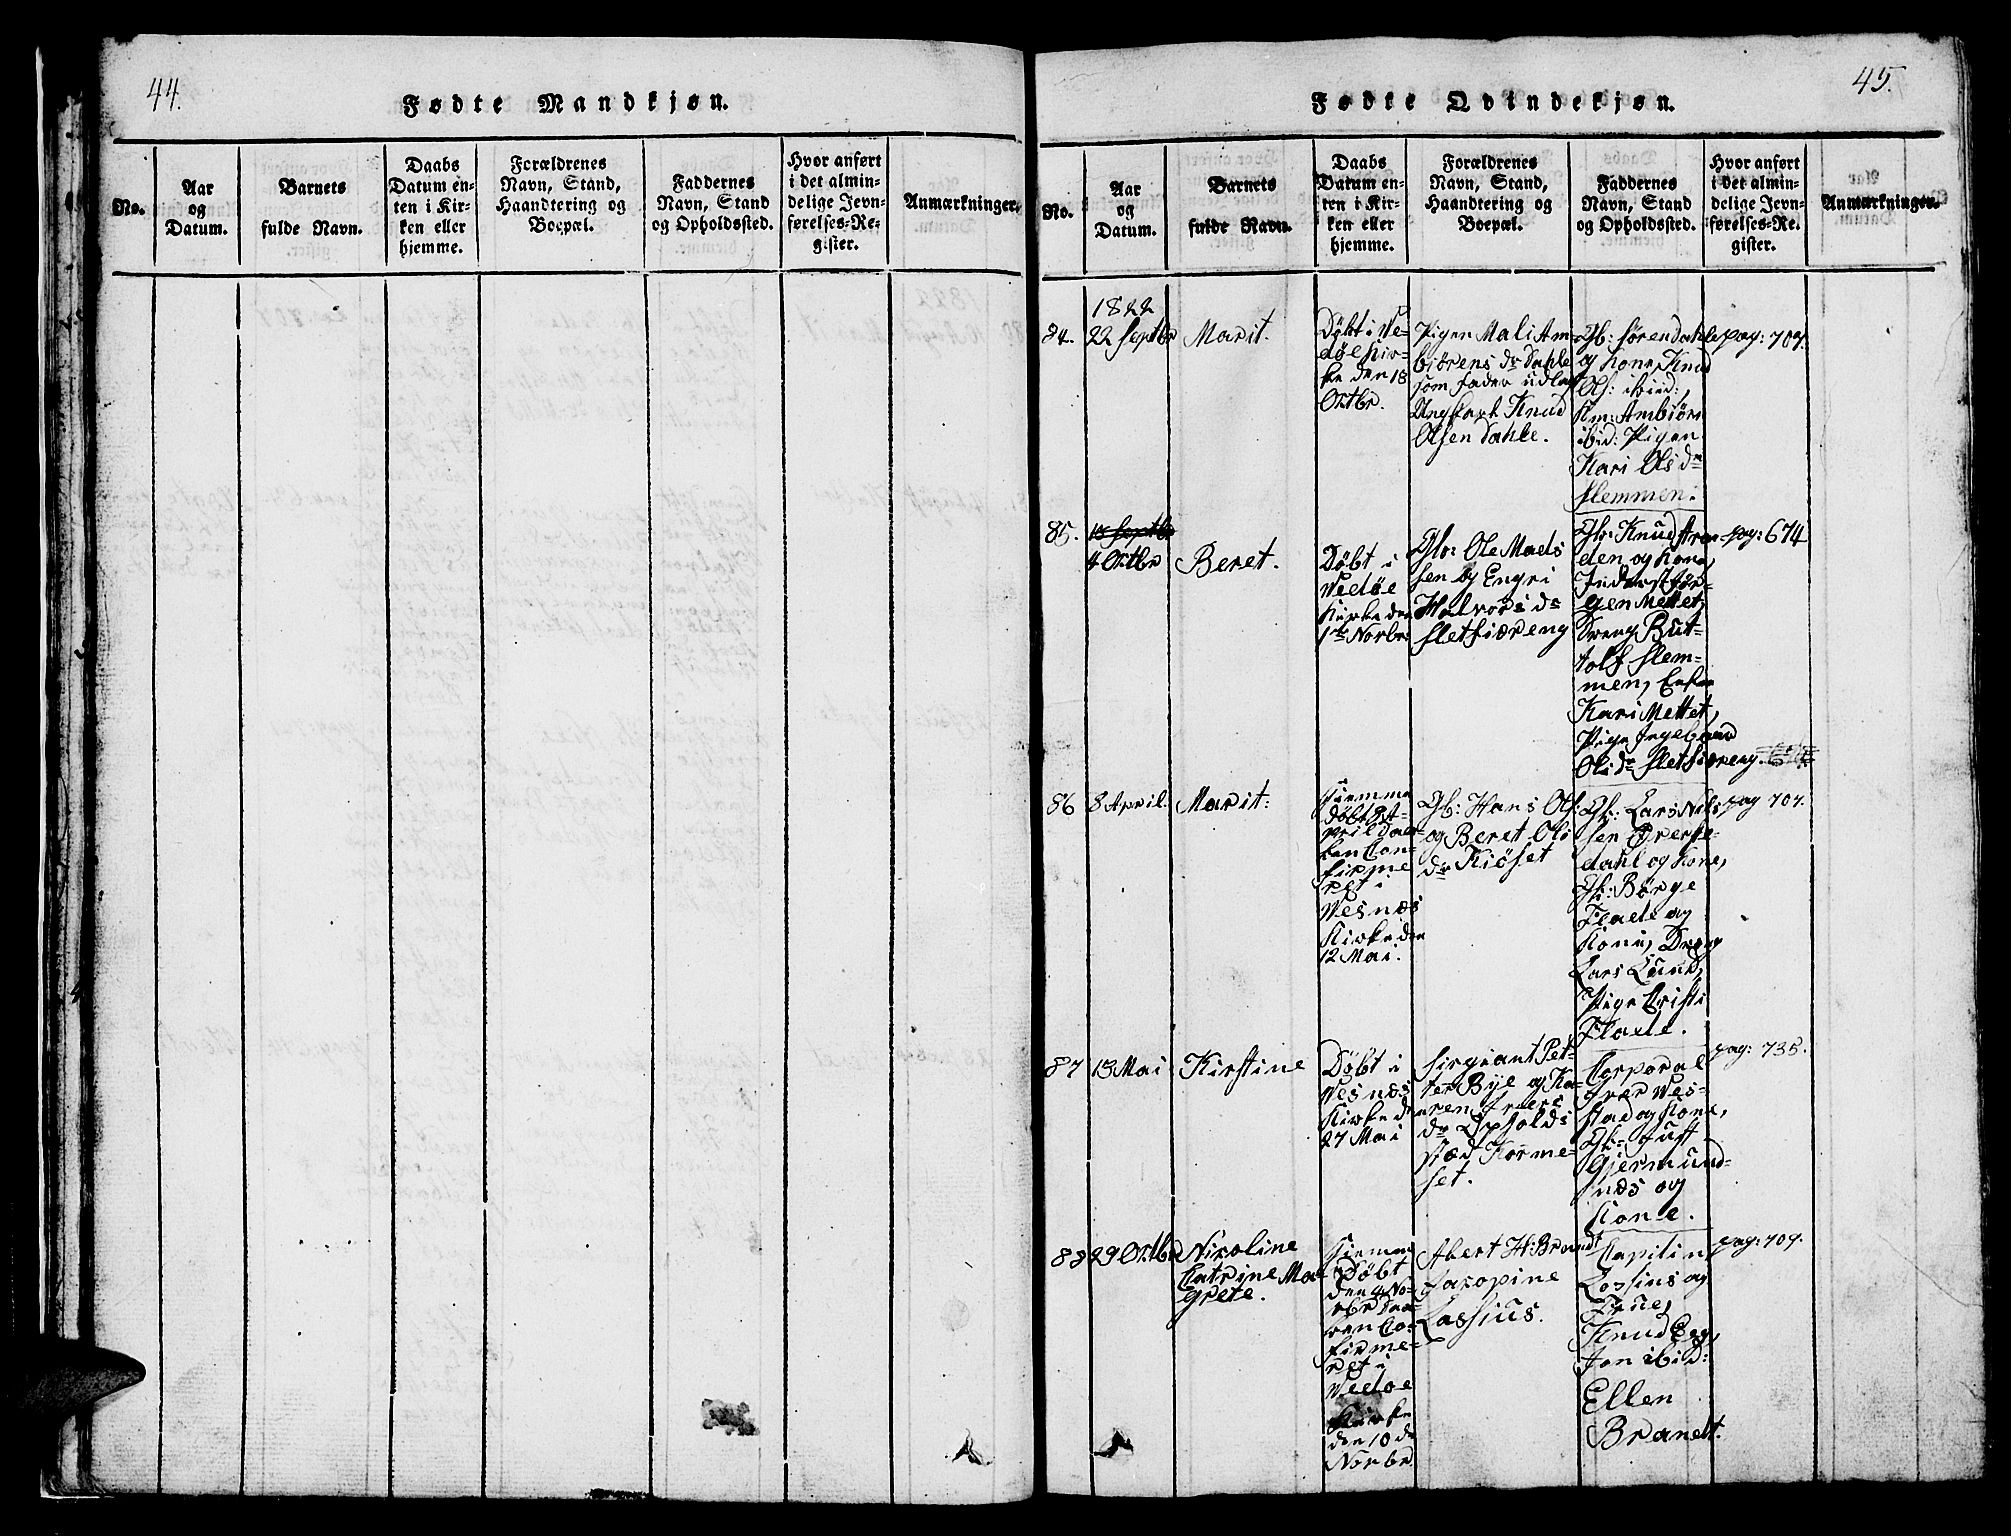 44.
Fødte Mandkjøn.
No.
Aar
og
Datum.
Barnets
fulde Navn.
Daabs
Datum en-
ten i Kir-
ken eller
hjemme.
Forældrenes
Navn, Stand,
Haandtering og
Boepæl.
Faddernes
Navn, Stand
og Opholdssted.
Hvor anført
i det almin-
delige Jevn-
førelses-Re-
gister.
Anmærkninger.
45.
Fødte Qvindekjøn.
No.
Aar
og
Datum.
Barnets
fulde Navn.
Daabs
Datum en-
ten i Kir-
ken eller
hjemme.
Forældrenes
Navn, Stand,
Haandtering og
Boepæl.
Faddernes
Navn, Stand
og Opholdssted.
Hvor anført
i det almin-
delige Jevn-
førelses-Re-
gister.
Anmærkninger.
1822
84.
22 Septbr
Marit.
Døbt i Ve-
døe Kir-
ke den 18
Octbr.
Pigen Mali Am-
biørens dr Dahle
som fader udlagt
Ungkarl Knud
Olsen Dahle.
Gb: Søren Dahle
og Kone, Knud
Ols: ibid:,
Am: Ambiørn
ibid: Pigen
Kari Ols dr
Slemmen.
pag: 707.
85.
4 Octbr
Beret.
Døbt i
Vedøe
Kirke den
1te Novbr.
Gbr: Ole Mads
sen og Engri
Halvors dr
Sletfiæreng
Gbr: Knud Aran
den og Kone,
Inderst Jør-
gen Mettet,
Dreng But-
tolf Slem-
men, Enke
Kari Mettet,
Pige Ingeborg
Ols dr Sletfiæreng.
pag: 674
86
8 April.
Marit:
Hiemme
døbt 8 A-
pril Daa-
ben Con-
firme
ret i
Vesnæs
Kirke den
12 Mai.
Gb: Hans Ols:
og Beret Ols
dr Kiøset
Gb: Lars Nils
sen Øverse-
dahl og Kone,
Gb: Børge
Flaele og
Kone, Dreng
Lars Lund,
Pige Cristi
Flaele.
pag 707.
87
13 Mai
Kirstine
Døbt i
Vesnæs
Kirke d
27 Mai
Sirgiant Pet-
ter Bye og Ka-
ren Ivers
dr Opholds
stæd Korme-
set.
Corporal
Iver Ves-
stad og Kone,
Gb: Just
Gjermund-
næs og
Kone.
pag: 735.
88
29 Octbr
Nicoline
Catrine Ma-
grete.
Hiemme
Døbt
den 4 No-
vbr Daa-
ben Co-
firme-
ret i
Vedøe
Kirke
den 10 de
Novbr.
Abert H: Brandt
Jacopine
Lossius.
Capitin
Lossius og
Frue,
Knud Egg,
Jon ibid:
Ellen
Brandt.
pag: 709.